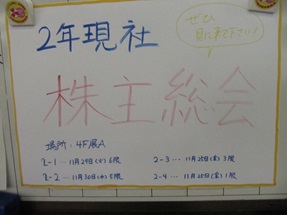 2年現社
ぜひ
見に来て下さい!
株主総会
場所：4F展A
2-1 … 11月29日(火) 6限
2-2 … 11月30日(水) 5限
2-3 … 11月25日(金) 3限
2-4 … 11月25日(金) 1限